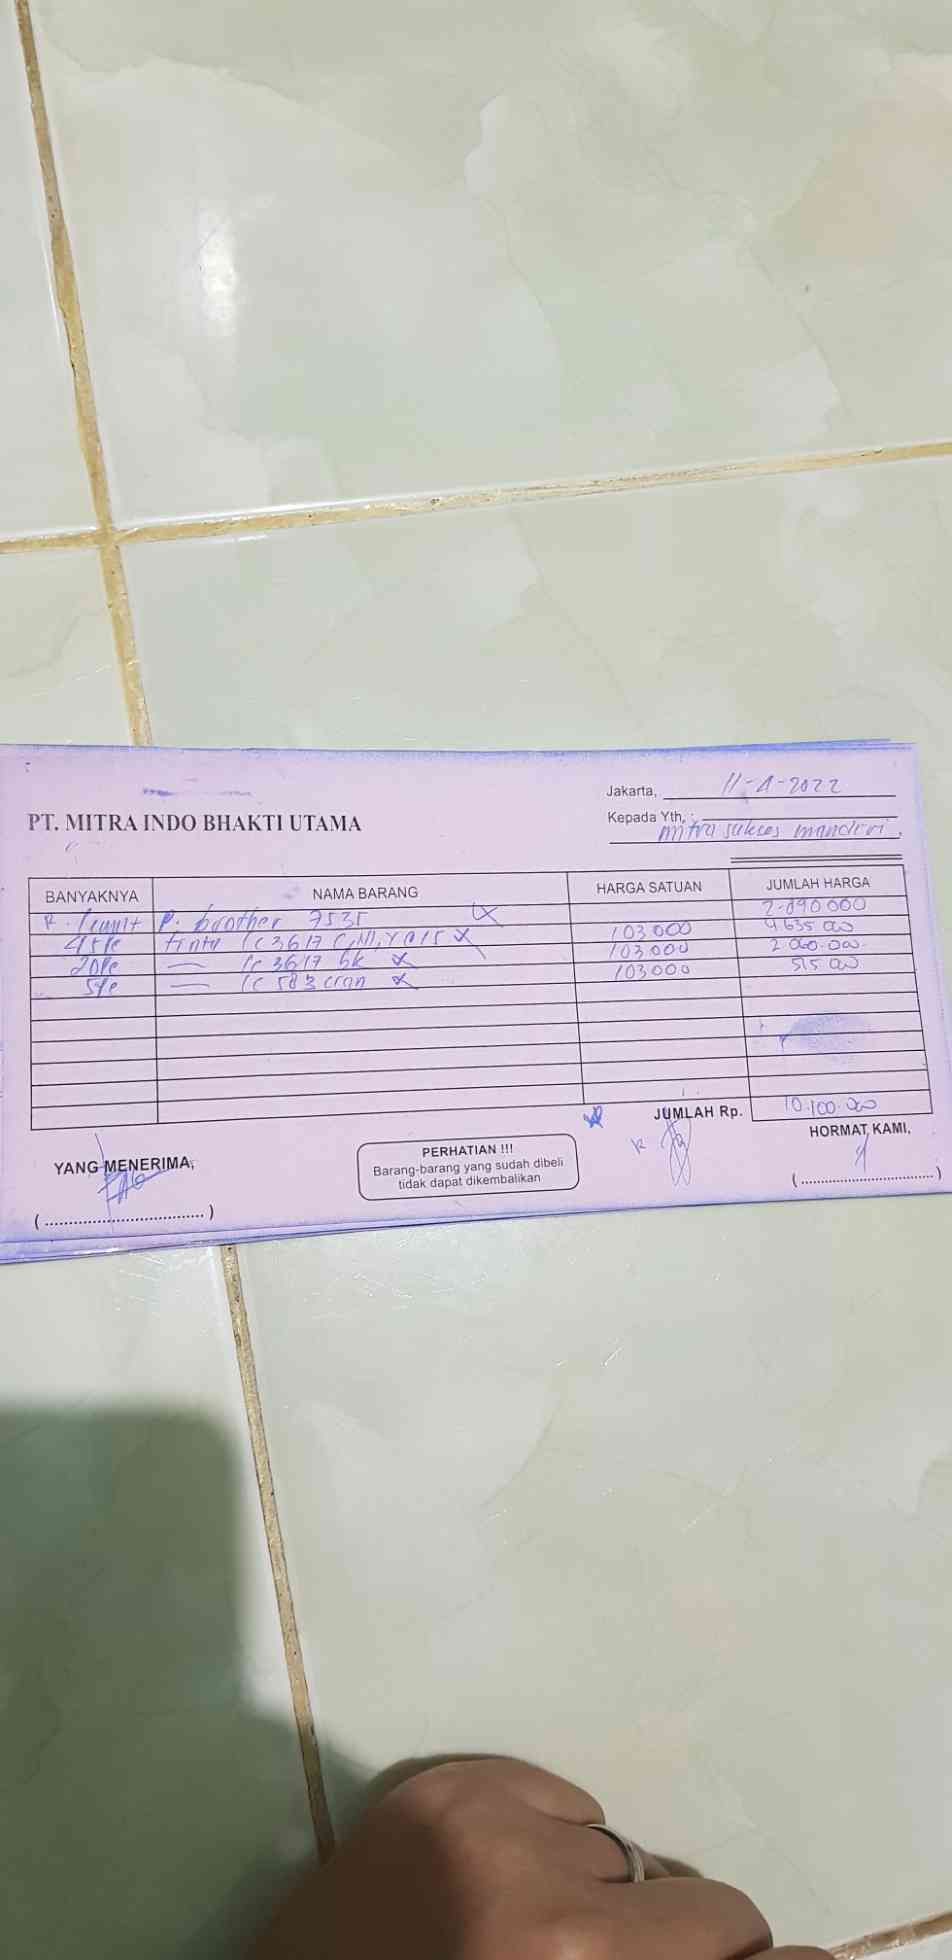 Jakarta, 11-4-2022
PT. MITRA INDO BHAKTI UTAMA
Kepada Yth, :
mitra sukses mandiri.
BANYAKNYA NAMA BARANG HARGA SATUAN JUMLAH HARGA
1 unit P. brother 7535 2.890.000
45 pc tinta 103.000 4.635.000
20 pc bk 103.000 2.060.000
5 pc 103.000 515.000
JUMLAH Rp. 10.100.000
YANG MENERIMA,
PERHATIAN !!!
Barang-barang yang sudah dibeli
tidak dapat dikembalikan
HORMAT KAMI,